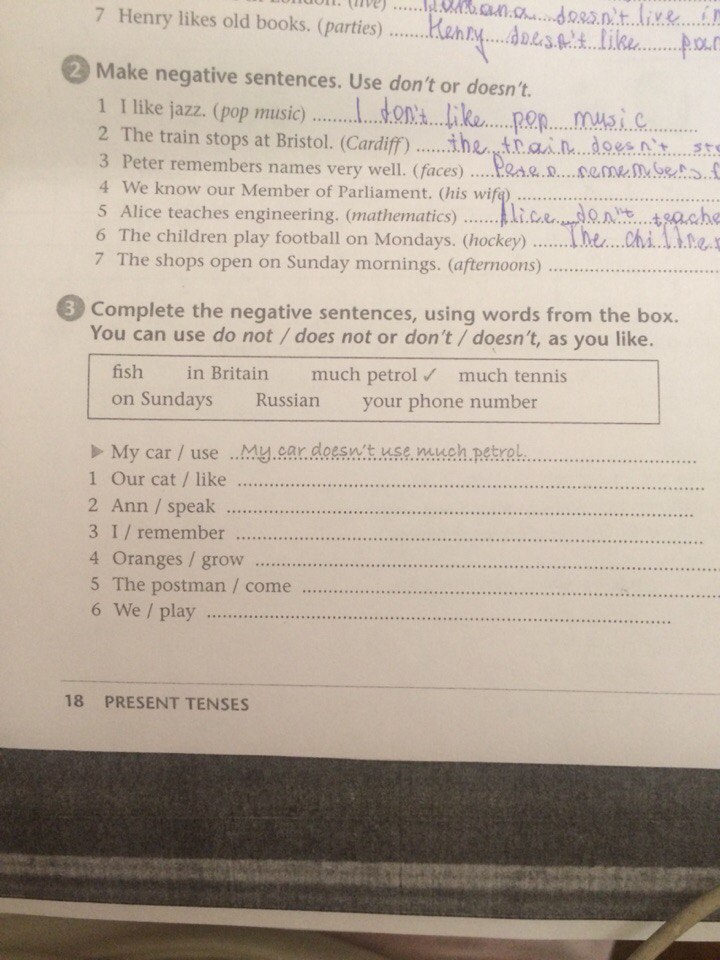 7 Henry likes old books. (parties) ..... Henry doesn't like
2 Make negative sentences. Use don't or doesn't.
1 I like jazz. (pop music) ..... I don't like pop music
2 The train stops at Bristol. (Cardiff) ..... the train doesn't
3 Peter remembers names very well. (faces) ..... remembers
4 We know our Member of Parliament. (his wife) .....
5 Alice teaches engineering. (mathematics) ..... Alice don't teache
6 The children play football on Mondays. (hockey) ..... The
7 The shops open on Sunday mornings. (afternoons) .....
3 Complete the negative sentences, using words from the box.
You can use do not / does not or don't / doesn't, as you like.
fish in Britain much petrol ✓ much tennis
on Sundays Russian your phone number
▶ My car / use ..My car doesn't use much petrol.....
1 Our cat / like .....
2 Ann / speak .....
3 I / remember .....
4 Oranges / grow .....
5 The postman / come .....
6 We / play .....
18 PRESENT TENSES